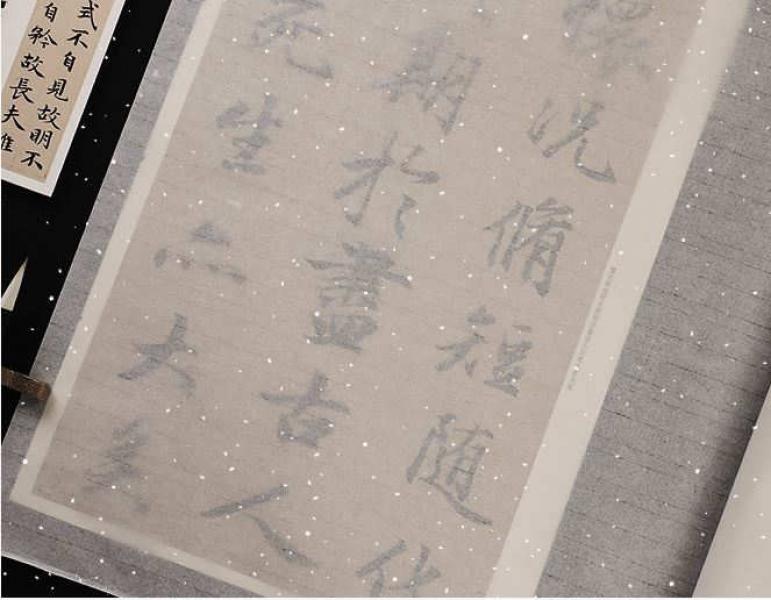 懷況脩短随化
期於盡古人
死生亦大矣
式不自見故明不
自矜故長夫